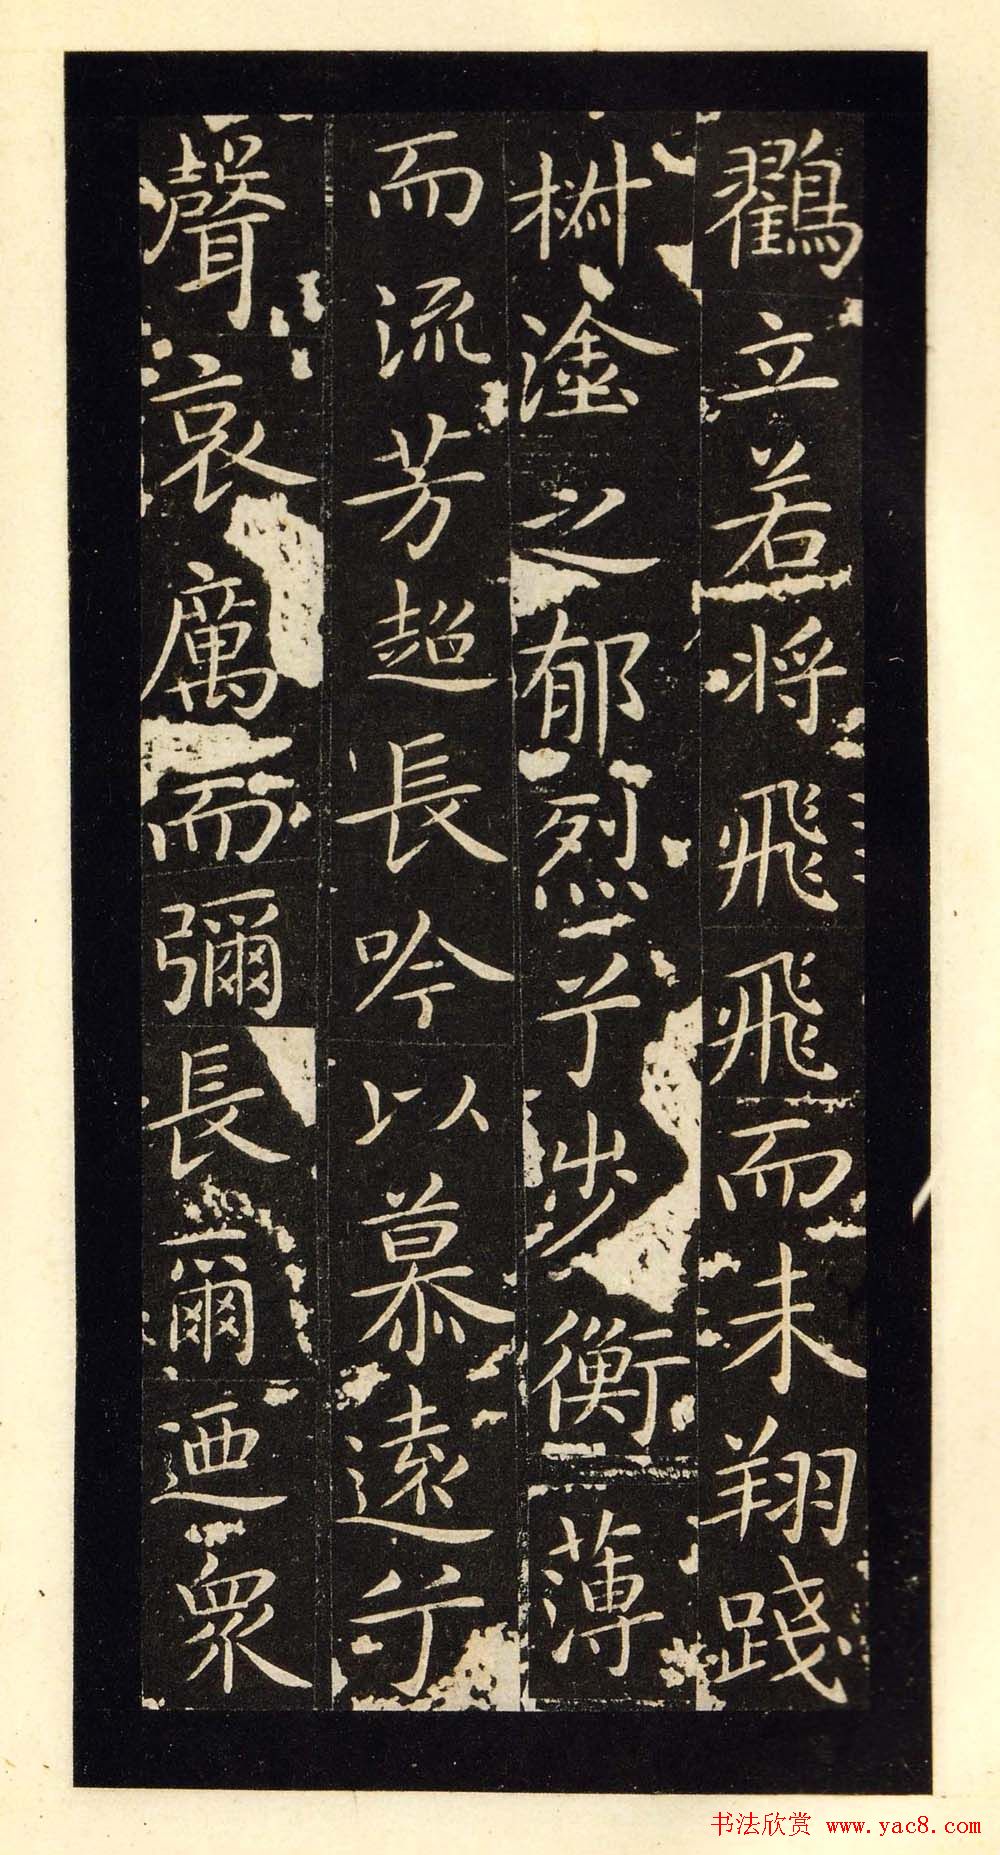 鸖立若將飛飛而未翔踐
樹塗之郁烈兮步衡薄
而流芳超長吟以慕遠兮
聲哀厲而彌長爾迺衆
书法欣赏 www.yac8.com